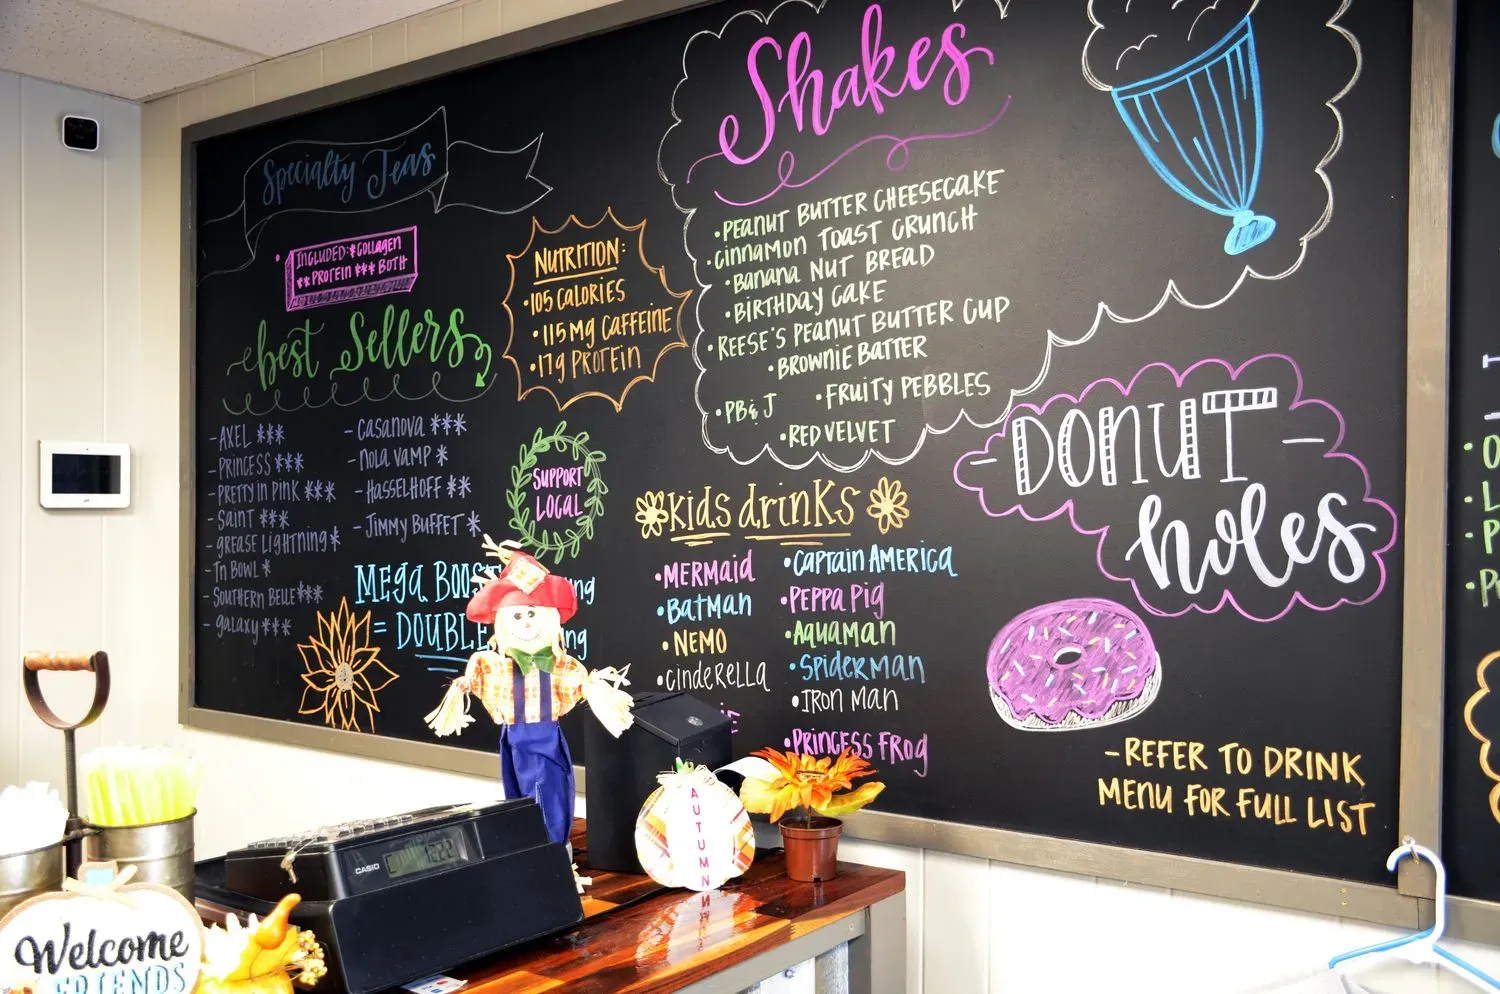 Specialty Teas
INCLUDED: *COLLAGEN
** PROTEIN *** BOTH
Best Sellers
- AXEL ***
- PRINCESS ***
- PRETTY IN PINK ***
- SAINT ***
- GREASE LIGHTNING *
- TN BOWL *
- SOUTHERN BELLE ***
- GALAXY ***
- CASANOVA ***
- NOLA VAMP *
- HASSELHOFF **
- JIMMY BUFFET *
MEGA BOOST
= DOUBLE
NUTRITION:
• 105 CALORIES
• 115 mg CAFFEINE
• 17g PROTEIN
SUPPORT
LOCAL
Shakes
• PEANUT BUTTER CHEESECAKE
• CINNAMON TOAST CRUNCH
• BANANA NUT BREAD
• BIRTHDAY CAKE
• REESE'S PEANUT BUTTER CUP
• BROWNIE BATTER
• FRUITY PEBBLES
• PB & J
• RED VELVET
Kids drinks
• MERMAID
• BATMAN
• NEMO
• CINDERELLA
• CAPTAIN AMERICA
• PEPPA PIG
• AQUAMAN
• SPIDERMAN
• IRON MAN
• PRINCESS FROG
- DONUT -
holes
- REFER TO DRINK
MENU FOR FULL LIST
AUTUMN
CASIO
Welcome
FRIENDS